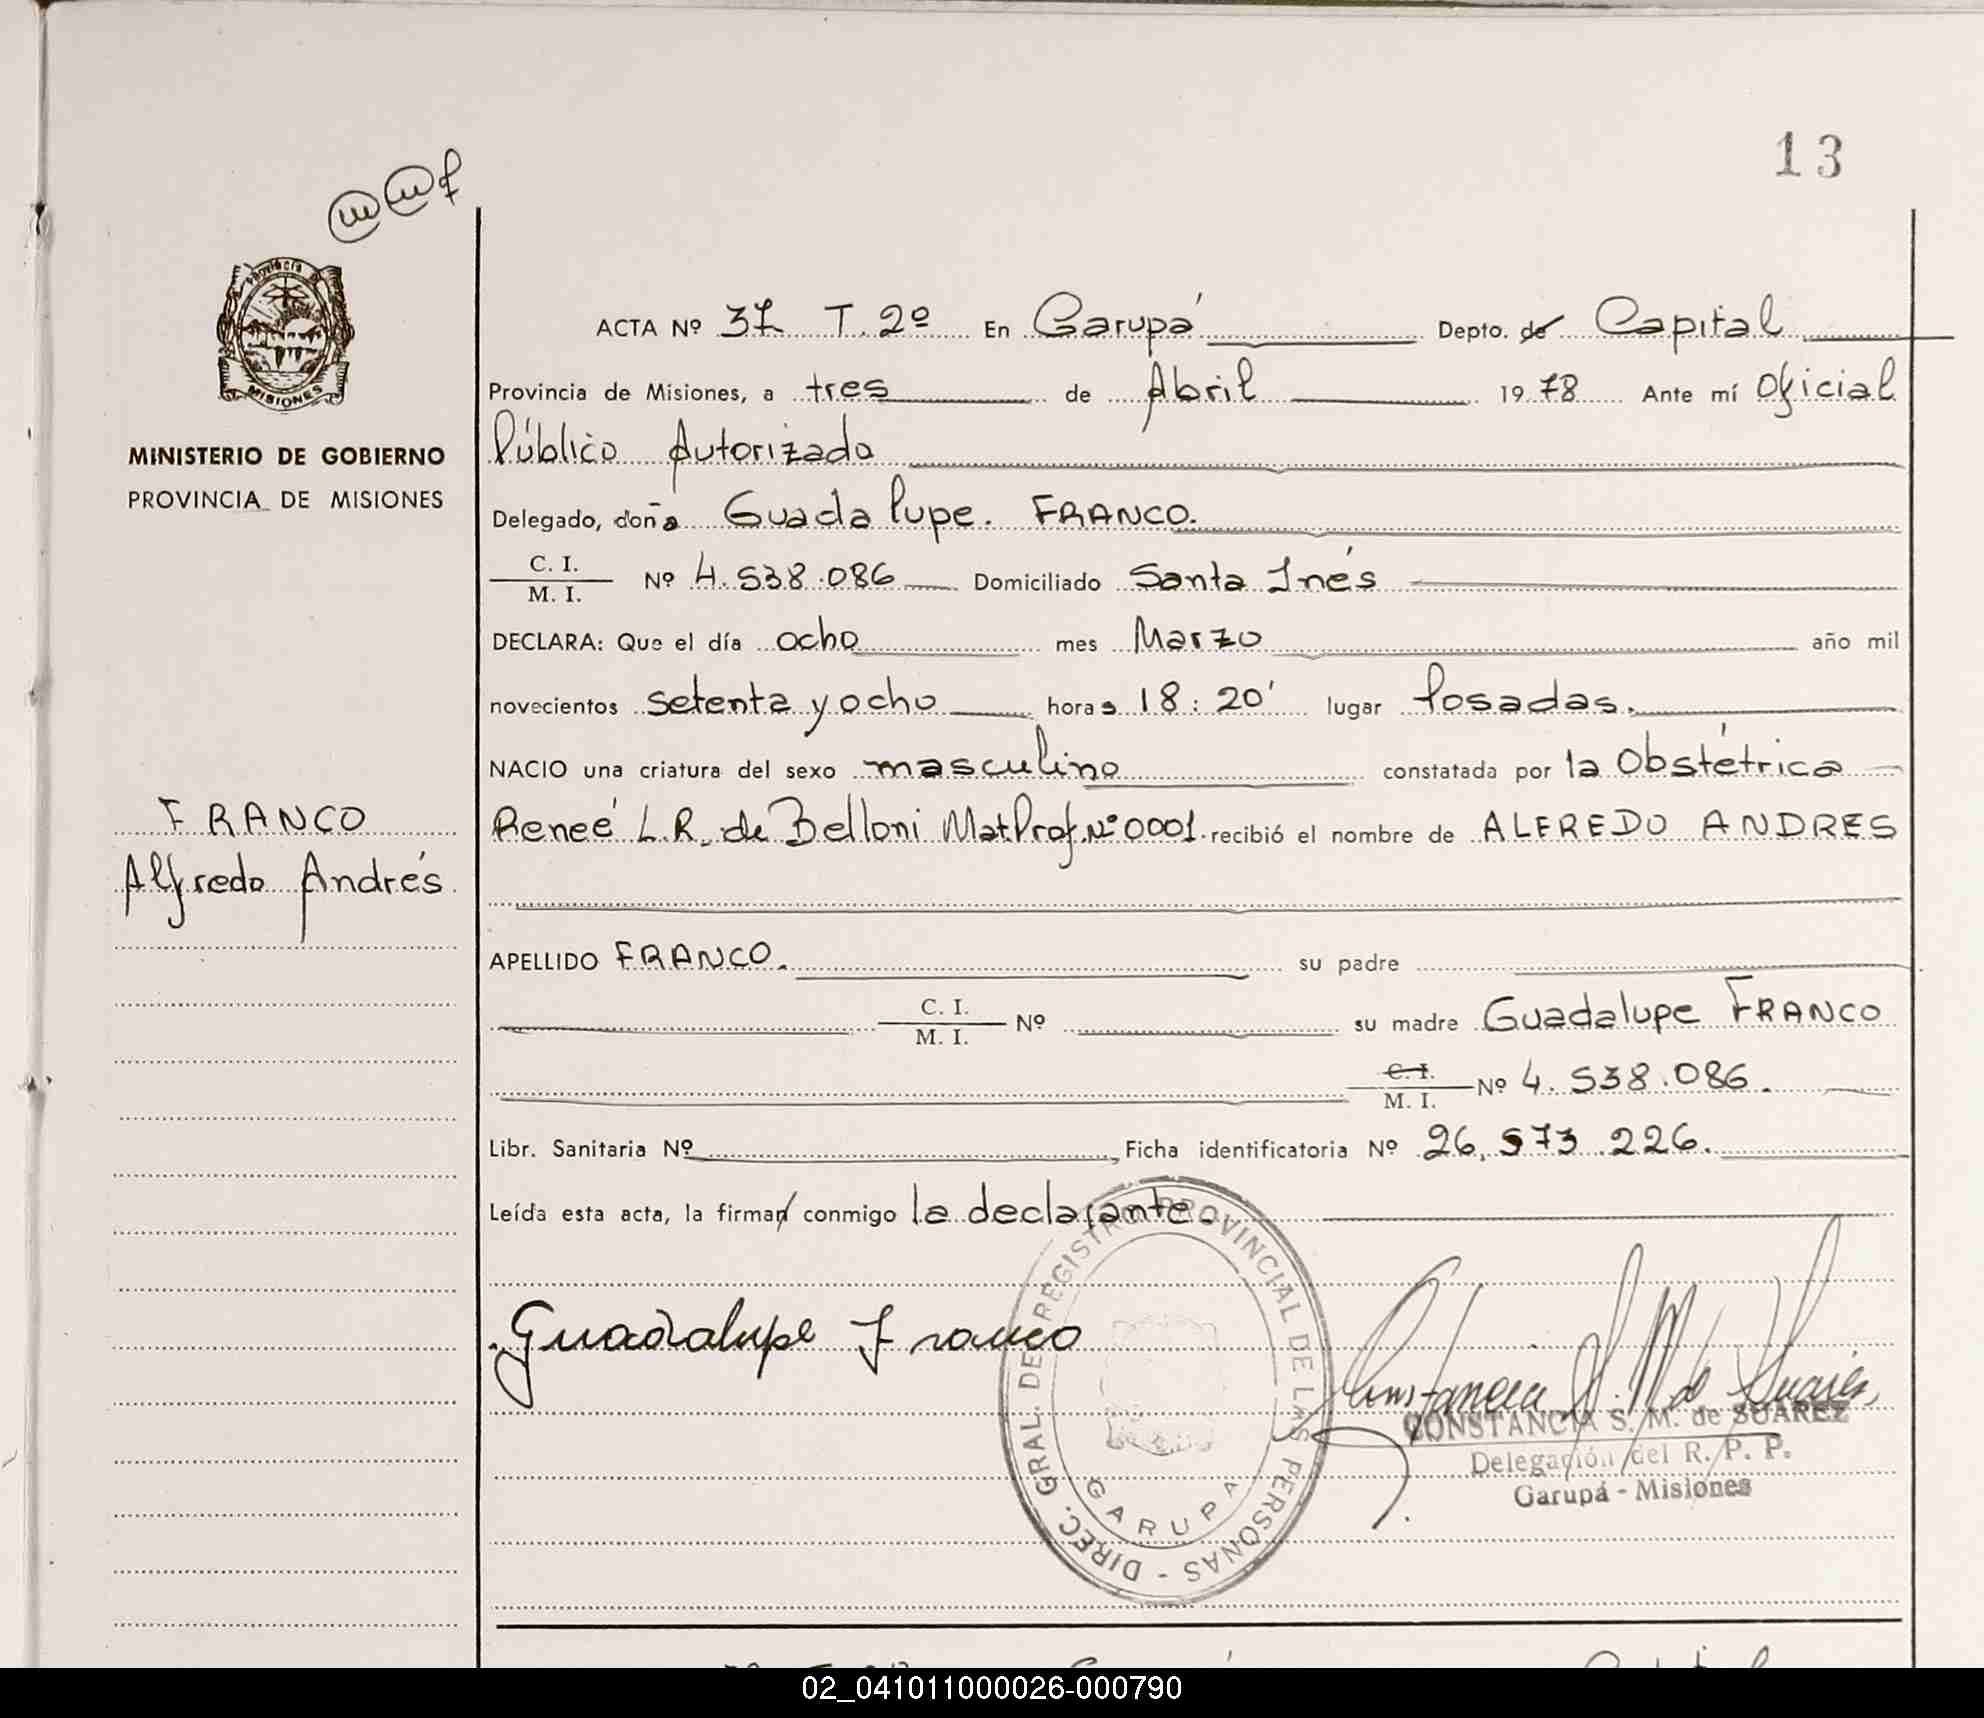 13
ACTA Nº 37 T. 2º En Garupá Depto. de Capital
Provincia de Misiones, a tres de Abril 1978 Ante mí Oficial
Público Autorizado
Delegado, doña Guadalupe. FRANCO.
C. I.
M. I.
Nº 4.538.086 Domiciliado Santa Inés
DECLARA: Que el día ocho mes Marzo año mil
novecientos setenta y ocho horas 18:20' lugar Posadas.
NACIO una criatura del sexo masculino constatada por la Obstétrica
Reneé L.R. de Belloni Mat.Prof.Nº 0001. recibió el nombre de ALFREDO ANDRES
APELLIDO FRANCO. su padre
C. I.
M. I.
Nº su madre Guadalupe FRANCO
C. I.
M. I.
Nº 4.538.086.
Libr. Sanitaria Nº Ficha identificatoria Nº 26.573.226.
Leída esta acta, la firman conmigo la declarante.
Guadalupe Franco
Constancia S. M. de Suárez
CONSTANCIA S. M. de SUAREZ
Delegación del R. P. P.
Garupá - Misiones
DIREC. GRAL. DEL REGISTRO PROVINCIAL DE LAS PERSONAS -
GARUPA
Provincia de
MISIONES
MINISTERIO DE GOBIERNO
PROVINCIA DE MISIONES
FRANCO
Alfredo Andrés
02_041011000026-000790